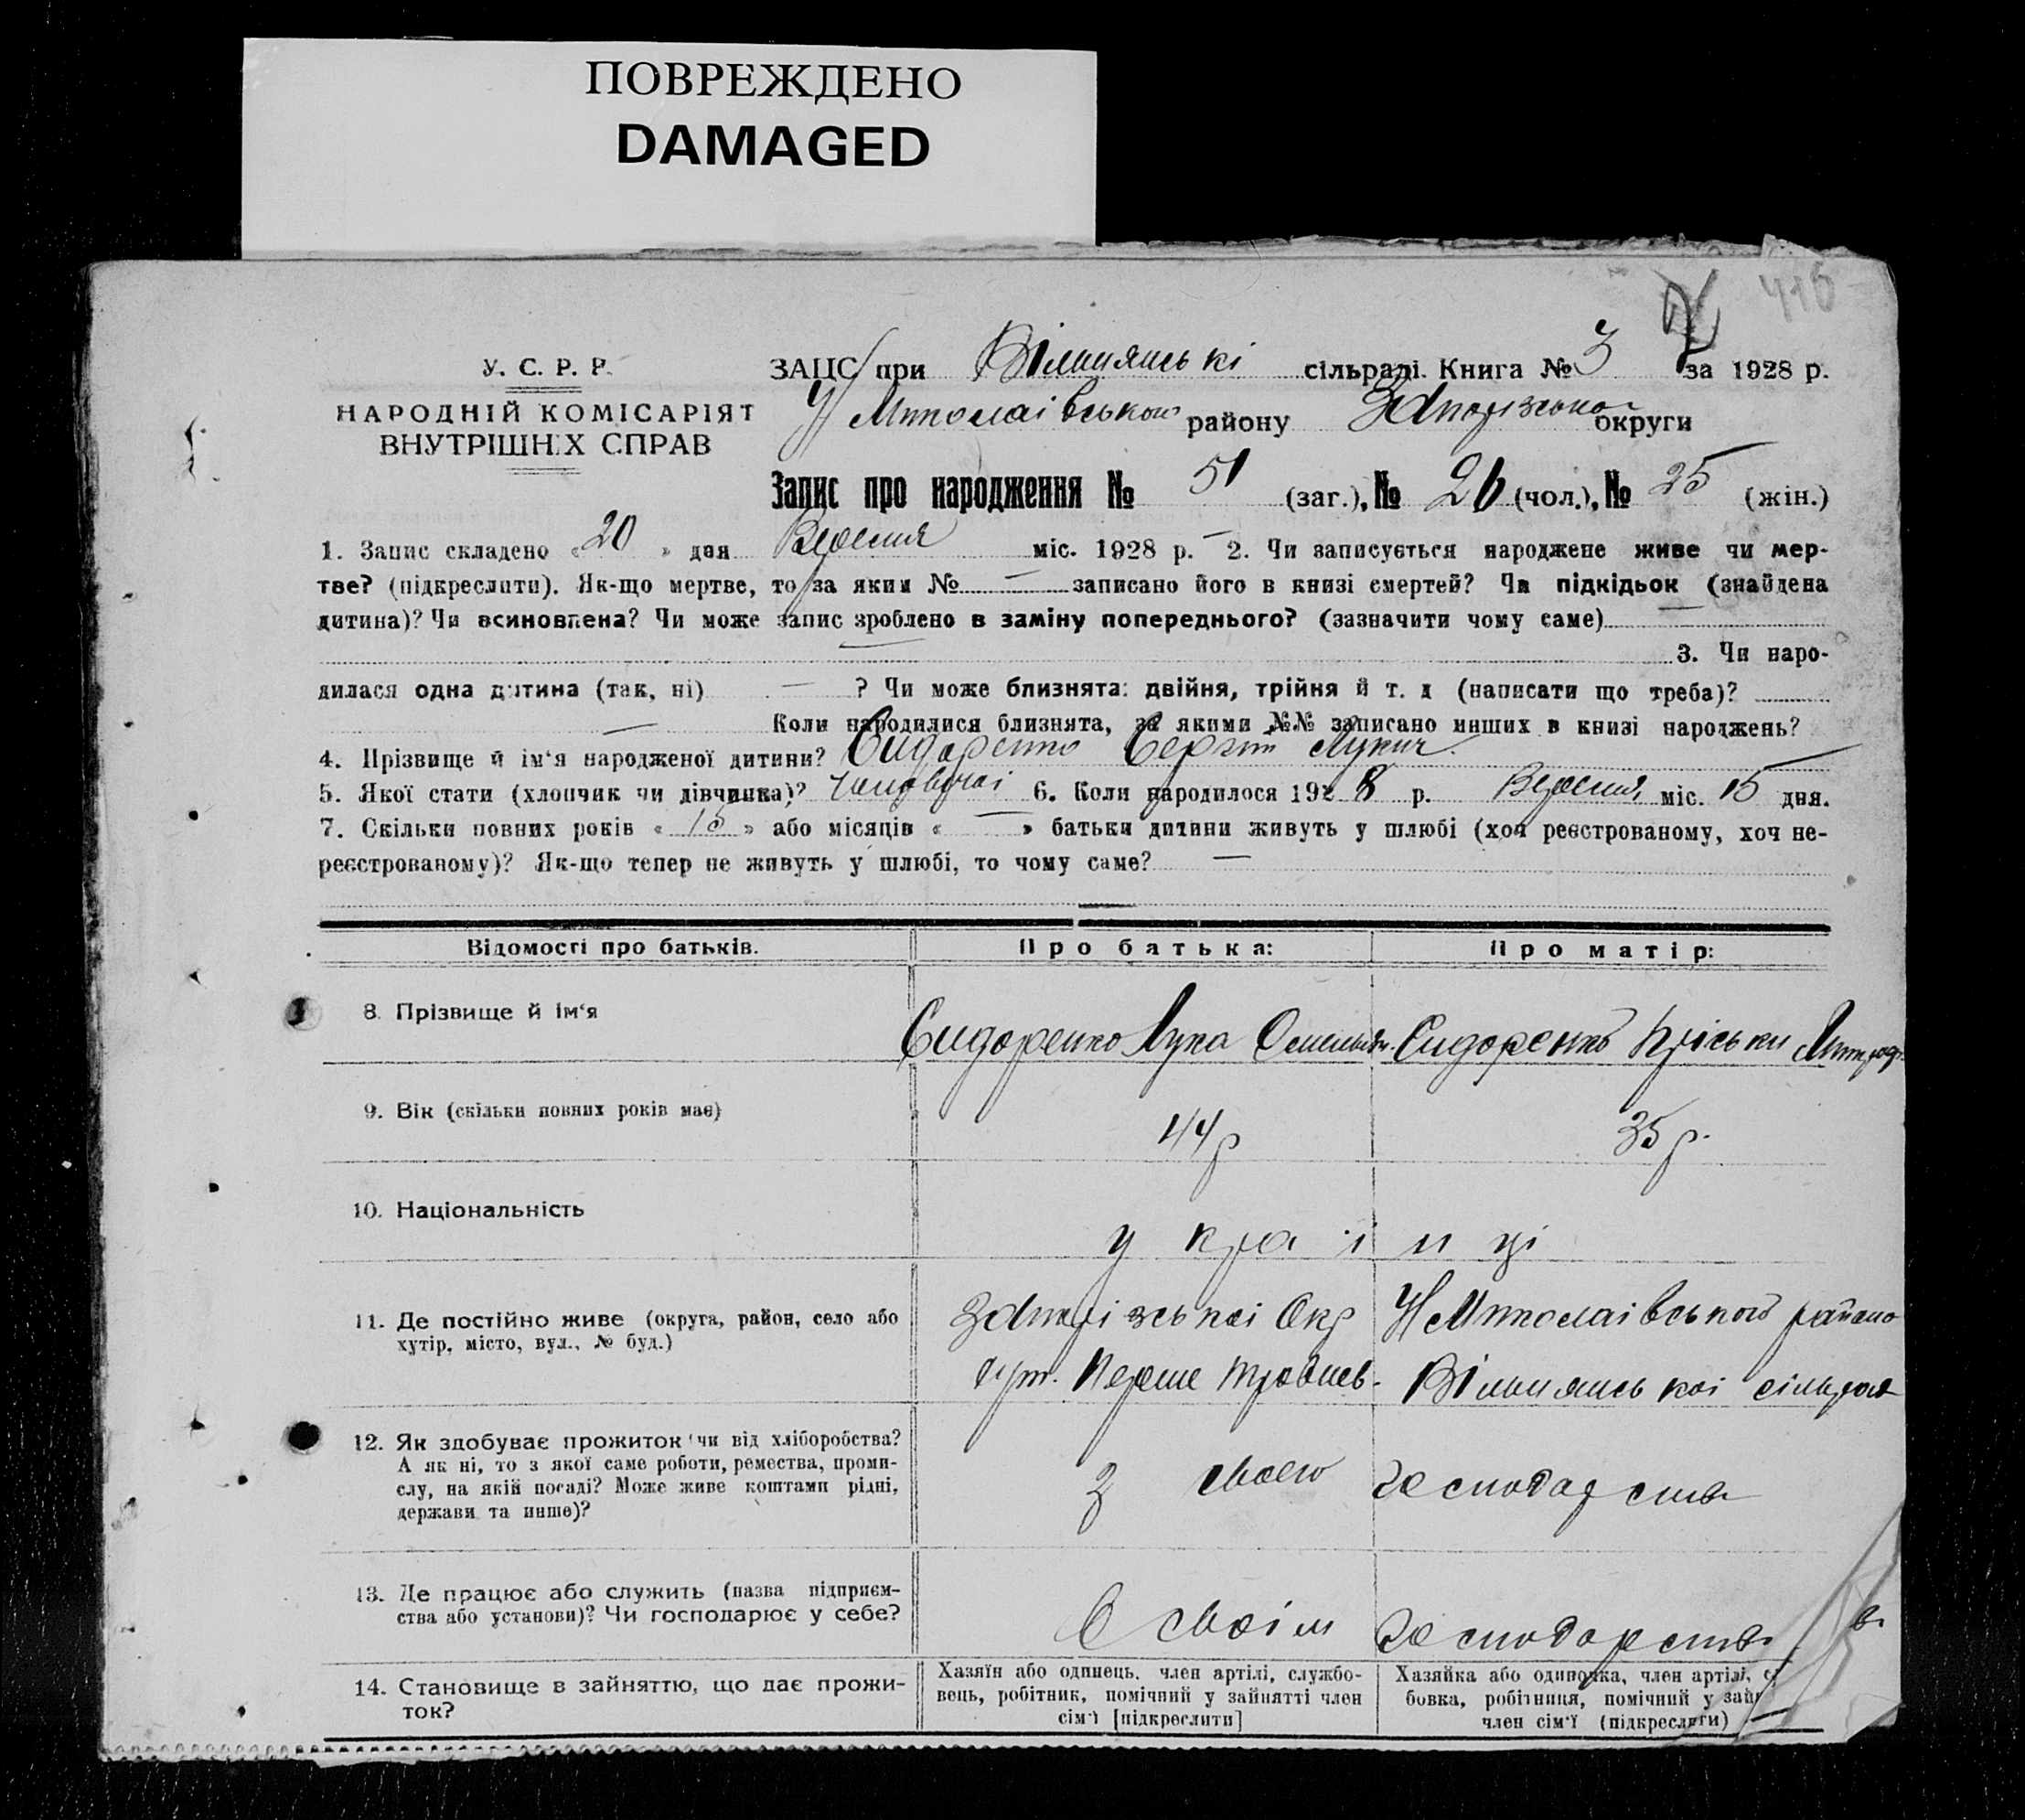 ПОВРЕЖДЕНО
DAMAGED
416
У. С. Р. Р.
НАРОДНІЙ КОМІСАРІЯТ
ВНУТРІШНІХ СПРАВ
ЗАЦС при Вільнянські сільраді. Книга № 3 за 1928 р.
Миколаівського району Запорізькоі округи
Запис про народження № 51 (заг.), № 26 (чол.), № 25 (жін.)
1. Запис складено « 20 » дня Вересня міс. 1928 р. — 2. Чи записується народжене живе чи мер-
тве? (підкреслити). Як-що мертве, то за яким № — записано його в книзі смертей? Чи підкідьок (знайдена
дитина)? Чи всиновлена? Чи може запис зроблено в заміну попереднього? (зазначити чому саме) —
— 3. Чи наро-
дилася одна дитина (так, ні) — ? Чи може близнята: двійня, трійня й т. д (написати що треба)?
— Коли народилися близнята, за якими №№ записано инших в книзі народжень?
4. Прізвище й ім‘я народженої дитини? Сидоренко Сергій Лукич.
5. Якої стати (хлопчик чи дівчинка)? 6. Коли народилося 1928 р. Вересня міс. 15 дня.
7. Скільки повних років « » або місяців « — » батьки дитини живуть у шлюбі (хоч реєстрованому, хоч не-
реєстрованому)? Як-що тепер не живуть у шлюбі, то чому саме? —
Відомості про батьків. Про батька: Про матір:
8. Прізвище й ім‘я Сидоренко Лука Сидоренко Пріська
9. Вік (скільки повних років має) 44 р 35 р.
10. Національність украінці
11. Де постійно живе (округа, район, село або Запорізькоі Окр Миколаівського району
хутір, місто, вул., № буд.) хут. Перше Травень Вільнянськоі сільради
12. Як здобуває прожиток чи від хліборобства?
А як ні, то з якої саме роботи, ремества, проми-
слу, на якій посаді? Може живе коштами рідні, З свого господарства
держави та инше)?
13. Де працює або служить (назва підприєм-
ства або установи)? Чи господарює у себе? В своім господарстві
14. Становище в зайняттю, що дає прожи-
ток?
Хазяїн або одинець, член артілі, службо-
вець, робітник, помічний у зайнятті член
сім‘ї [підкреслити]
Хазяйка або одиночка, член артілі,
бовка, робітниця, помічний у
член сім‘ї (підкреслити)